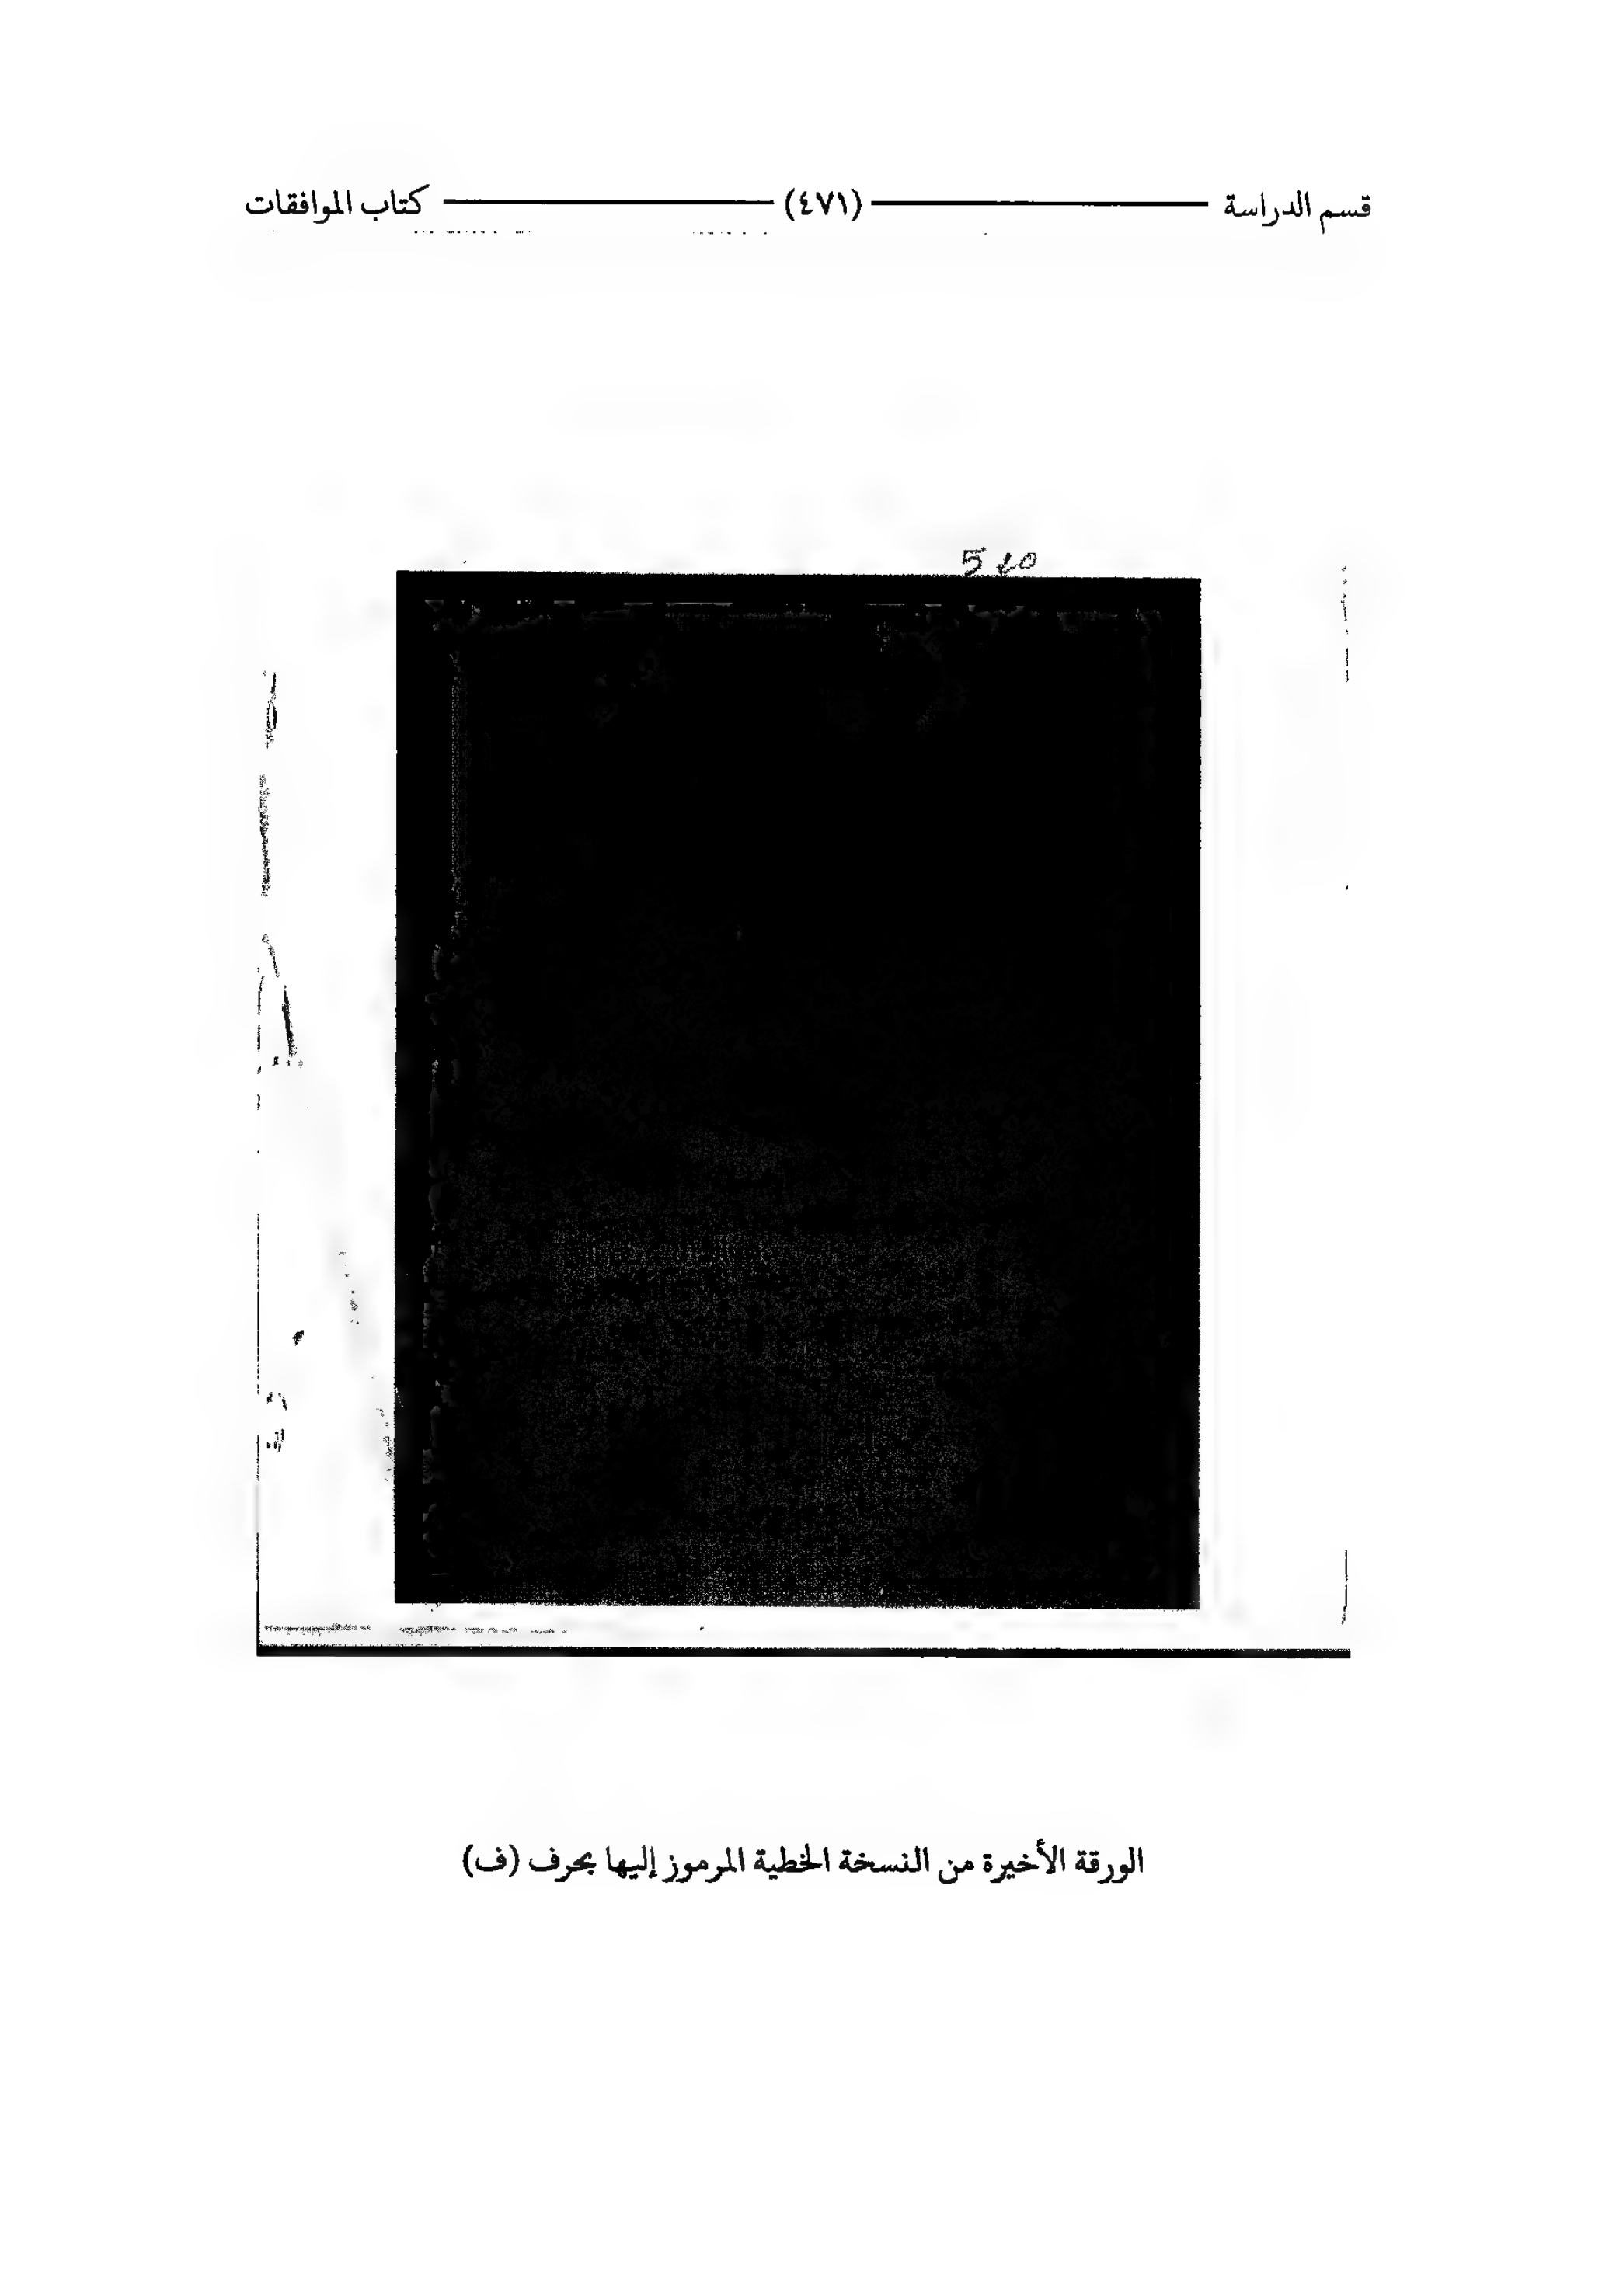 قسم الدراسة (٤٧١) كتاب الموافقات
الورقة الأخيرة من النسخة الخطية المرموز إليها بحرف (ف)